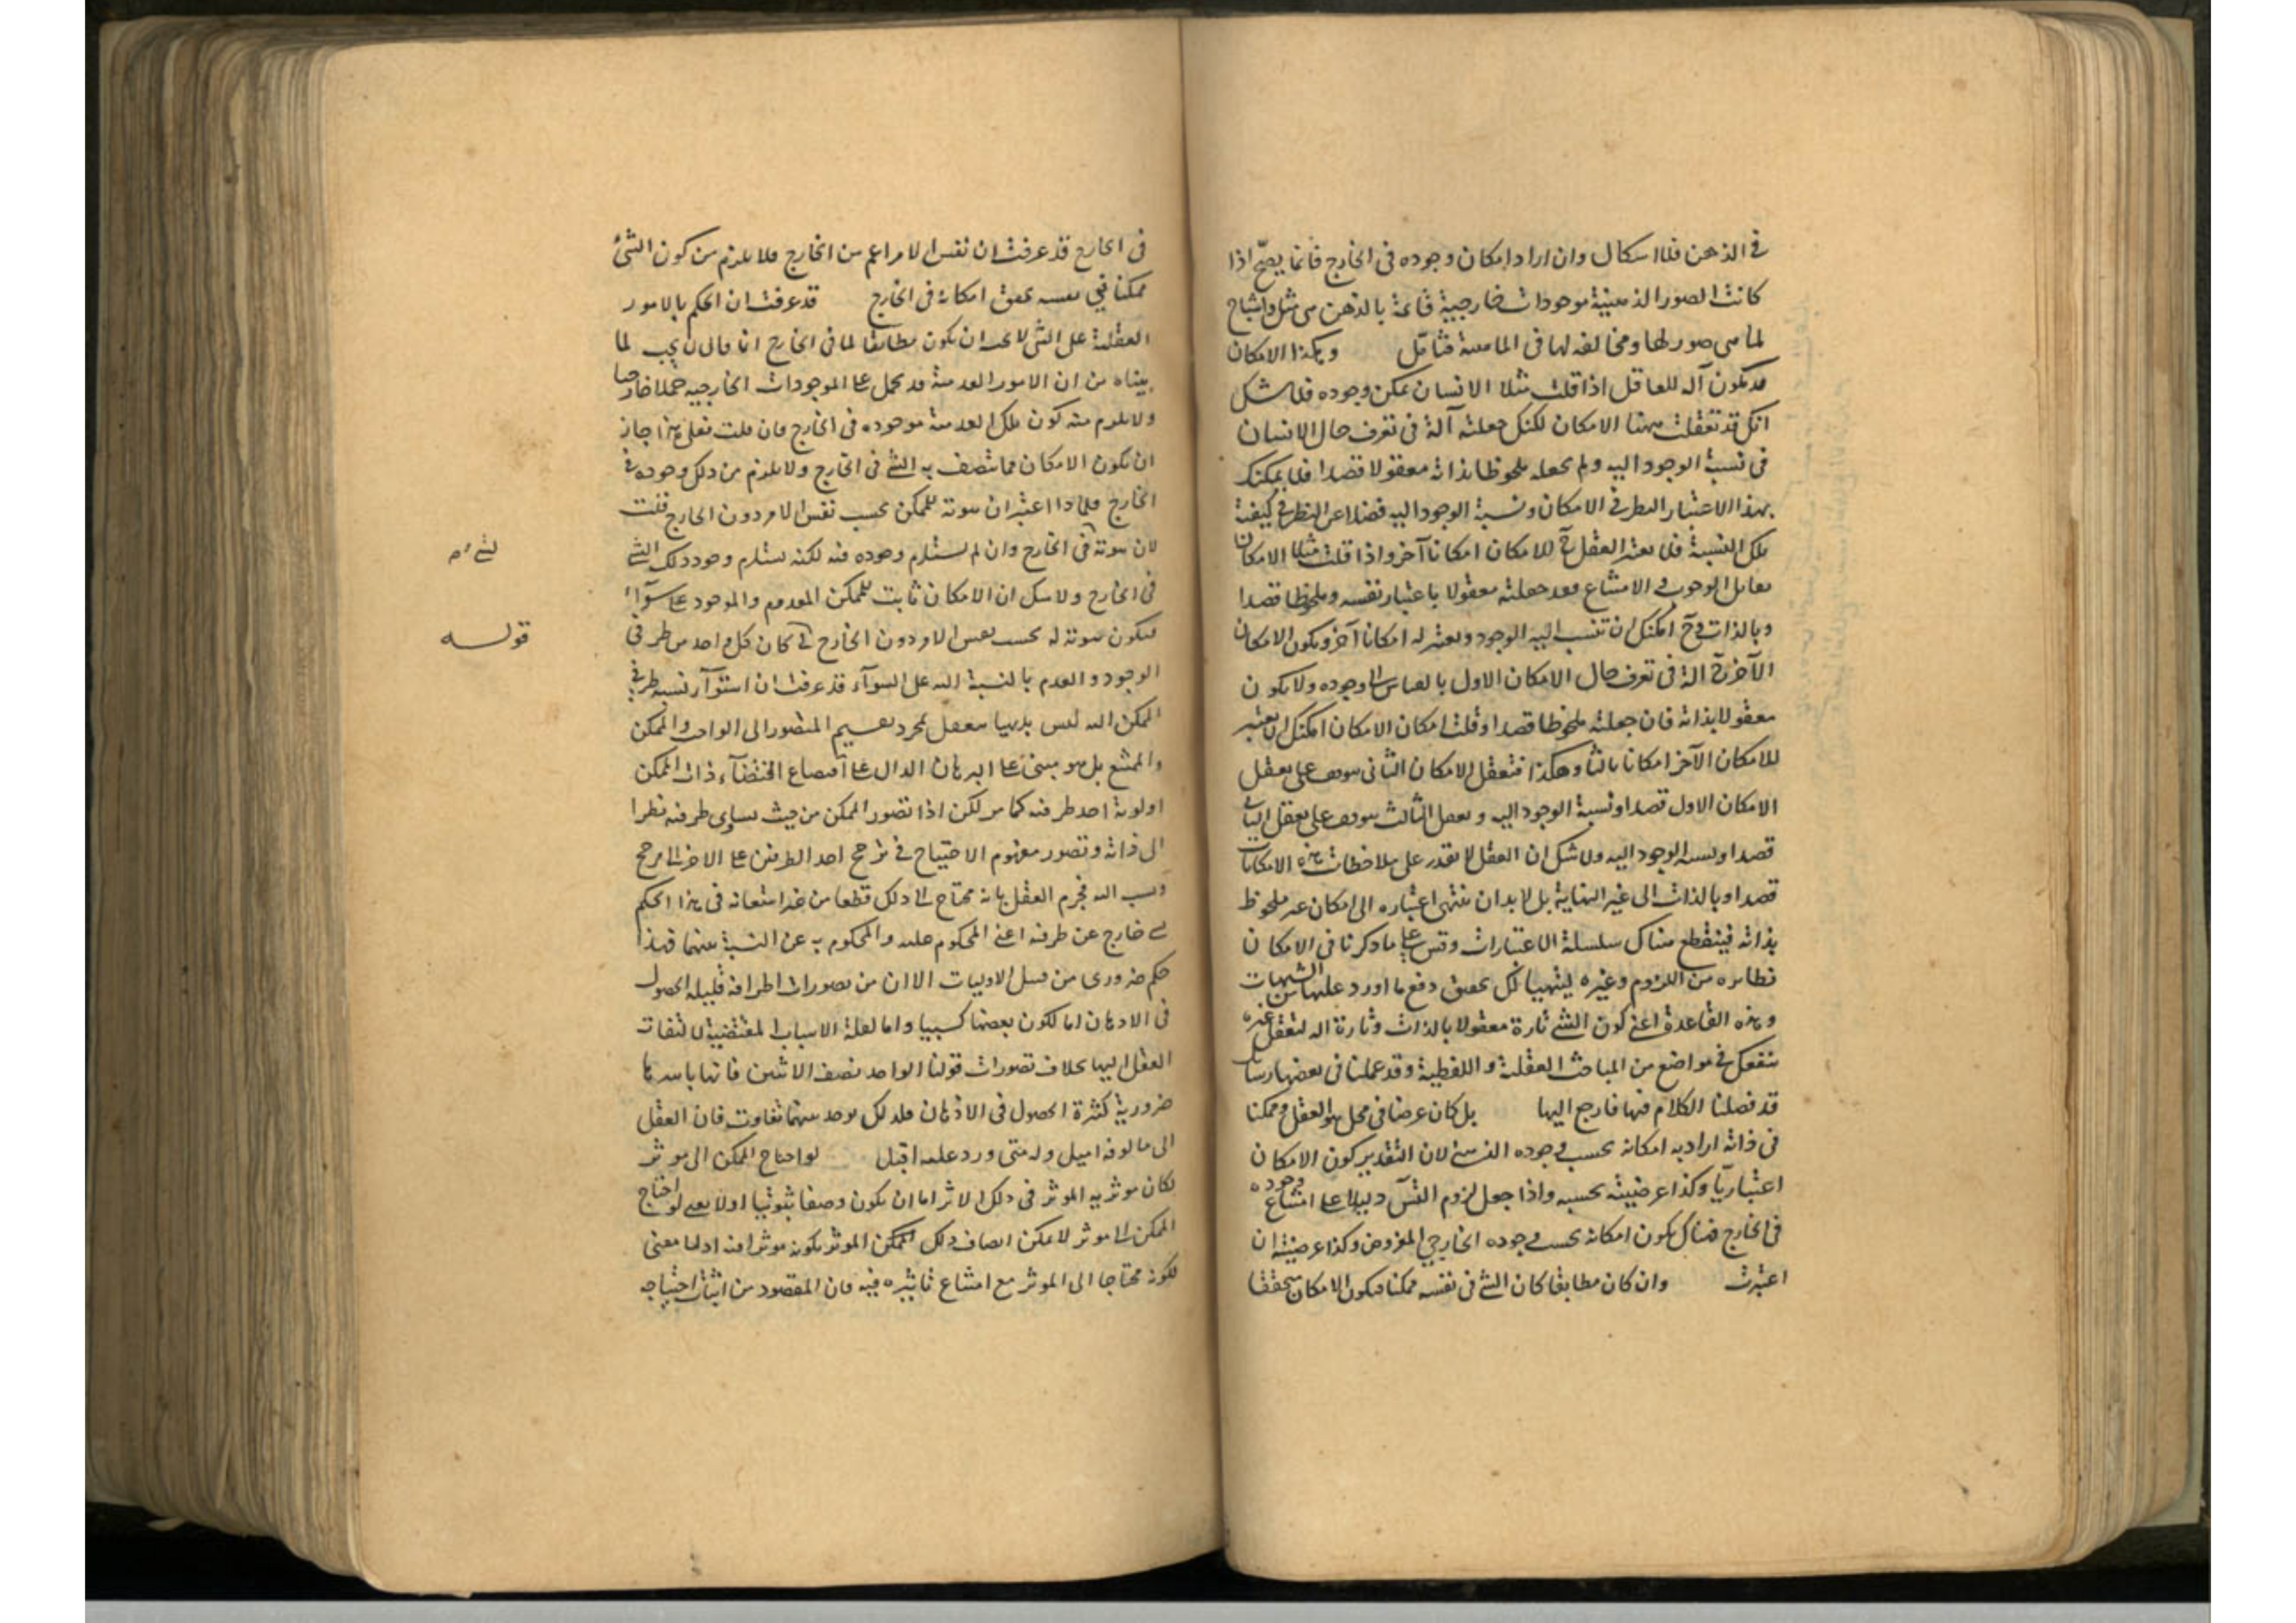 في الذهن فلا اشكال وان اراد امكان وجوده في الخارج فانما يصح اذا
كانت الصور الذهنية موجودات خارجية قائمة بالذهن هي مثل واشباح
لما هي صور لها ومخالفة لها في الماهية فتأمل وهكذا الامكان
قد يكون آلة للعاقل اذا قلت مثلا الانسان يمكن وجوده فلا شك
انك قد تعقلت ههنا الامكان لكنك جعلته آلة في تعرف حال الانسان
في نسبة الوجود اليه ولم تجعله ملحوظا بذاته معقولا قصدا فلا يمكنك
بهذا الاعتبار النظر في الامكان ونسبة الوجود اليه فضلا عن النظر في كيفية
تلك النسبة فلا يعتبر العقل ح للامكان امكانا آخر واذا قلت مثلا الامكان
يقابل الوجوب والامتناع فقد جعلته معقولا باعتبار نفسه وملحوظا قصدا
وبالذات وح امكنك ان تنسب اليه الوجود وتعتبر له امكانا آخر ويكون الامكان
الآخر ح آلة في تعرف حال الامكان الاول بالقياس الى وجوده ولا يكون
معقولا بذاته فان جعلته ملحوظا قصدا وقلت امكان الامكان امكنك ان تعتبر
للامكان الآخر امكانا ثالثا وهكذا فتعقل الامكان الثاني موقوف على تعقل
الامكان الاول قصدا ونسبة الوجود اليه وتعقل الثالث موقوف على تعقل الثاني
قصدا ونسبة الوجود اليه ولا شك ان العقل لا يقدر على ملاحظات هذه الامكانات
قصدا وبالذات الى غير النهاية بل لا بد ان ينتهي اعتباره الى امكان غير ملحوظ
بذاته فينقطع هناك سلسلة الاعتبارات وقس على ما ذكرنا في الامكان
نظائره من اللزوم وغيره لينتهيا لك تحقق دفع ما اورد عليها من الشبهات
وهذه القاعدة اعني كون الشئ تارة معقولا بالذات وتارة آلة لتعقل غيره
تنفعك في مواضع من المباحث العقلية واللفظية وقد عملنا في بعضها رسالة
قد فصلنا الكلام فيها فارجع اليها بل كان عرضا في محل هو العقل وممكنا
في ذاته اراد به امكانه بحسب وجوده الذهني لان التقدير كون الامكان
اعتباريا وكذا عرضيته بحسبه واذا جعل لزوم التس دليلا على امتناع وجوده
في الخارج فهناك يكون امكانه بحسب وجوده الخارجي المفروض وكذا عرضيته ان
اعتبرت وان كان مطابقا كان الشئ في نفسه ممكنا فيكون الامكان متحققا
في الخارج قد عرفت ان نفس الامر اعم من الخارج فلا يلزم من كون الشئ
ممكنا في نفسه تحقق امكانه في الخارج قد عرفت ان الحكم بالامور
العقلية على الشئ لا يجب ان يكون مطابقا لما في الخارج انما قال لا يجب لما
بيناه من ان الامور العدمية قد تحمل على الموجودات الخارجية حملا خارجيا
ولا يلزم منه كون تلك العدمية موجودة في الخارج فان قلت فعلى هذا جاز
ان يكون الامكان مما يتصف به الشئ في الخارج ولا يلزم من ذلك وجوده في
الخارج فلماذا اعتبر ان ثبوته للممكن بحسب نفس الامر دون الخارج قلت
لان ثبوته في الخارج وان لم يستلزم وجوده فيه لكنه يستلزم وجود ذلك الشئ
في الخارج ولا شك ان الامكان ثابت للممكن المعدوم والموجود على سواء
فيكون ثبوته له بحسب نفس الامر دون الخارج كان كل واحد من طرفي
الوجود والعدم بالنسبة اليه على السواء قد عرفت ان استواء نسبة طرفي
الممكن اليه ليس بديهيا بتعقل لمجرد تقسيم المتصور الى الواجب والممكن
والممتنع بل هو مبني على البرهان الدال على امتناع اقتضاء ذات الممكن
اولوية احد طرفيه كما مر لكن اذا تصور الممكن من حيث يساوي طرفيه نظرا
الى ذاته وتصور مفهوم الاحتياج في ترجح احد الطرفين على الآخر الى مرجح
ونسب اليه فجزم العقل بانه محتاج الى ذلك قطعا من غير استعانة في هذا الحكم
خارج عن طرفيه اعني المحكوم عليه والمحكوم به عن النسبة بينهما فهذا
حكم ضروري من قبيل الاوليات الا ان من تصورات اطرافه قليلة الحصول
في الاذهان اما لكون بعضها كسبيا واما لعلة الاسباب المقتضية لالتفات
العقل اليها بخلاف تصورات قولنا الواحد نصف الاثنين فانها باسرها
ضرورية كثيرة الحصول في الاذهان فلذلك يوجد بينهما تفاوت فان العقل
الى مالوفه اميل وله متى ورد عليه اقبل لو احتاج الممكن الى مؤثر
لكان مؤثرية المؤثر في ذلك الاثر اما ان يكون وصفا ثبوتيا او لا يعني لو احتاج
الممكن الى مؤثر لامكن اتصاف ذلك الممكن المؤثر بكونه مؤثرا فيه اذ لا معنى
لكونه محتاجا الى المؤثر مع امتناع تأثيره فيه فان المقصود من اثبات احتياجه
قوله